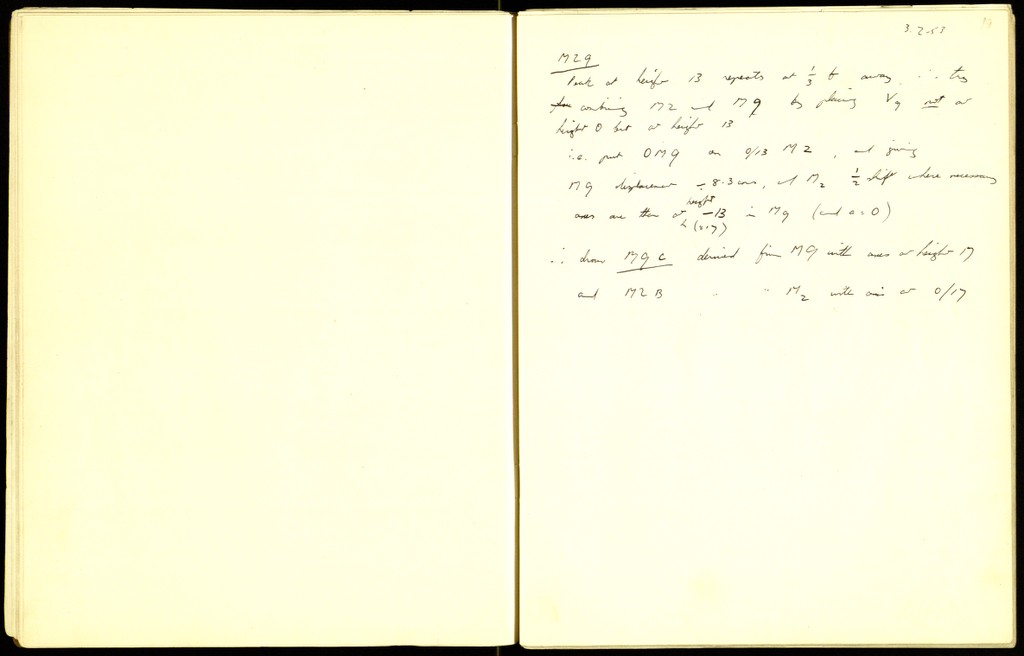 3.2.53
M29
Peak at height 13 repeats at 1/3 b away ∴ try
combining M2 and M9 by placing V9 not at
height 0 but at height 13
i.e. put 0M9 on 0/13 M2, and giving
M9 displacement 8.3 cms, and M2 1/2 shift where necessary
axes are then at height -13 in M9 (and at 0)
∴ draw M9C derived from M9 with axes at height 17
and M2B " " M2 with axis at 0/17